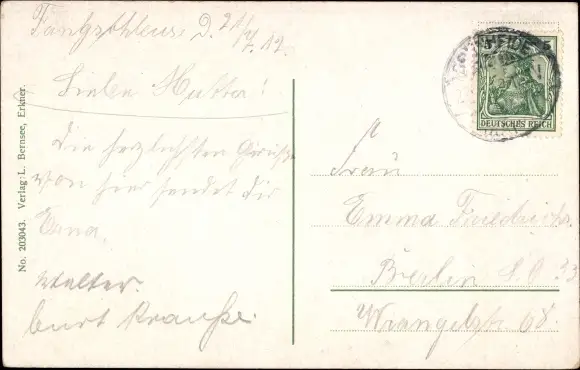 Fangschleuse d. 21/7.12.
Lieben Mutter!
Die herzlichsten Grüße
von hier sendet dir
Erna,
Walter.
Curt Krause.
No. 203043. Verlag: L. Bernsee, Erkner.
5
DEUTSCHES REICH
Frau
Emma Friedrich
Berlin S.O. 33
Wrangelstr. 68